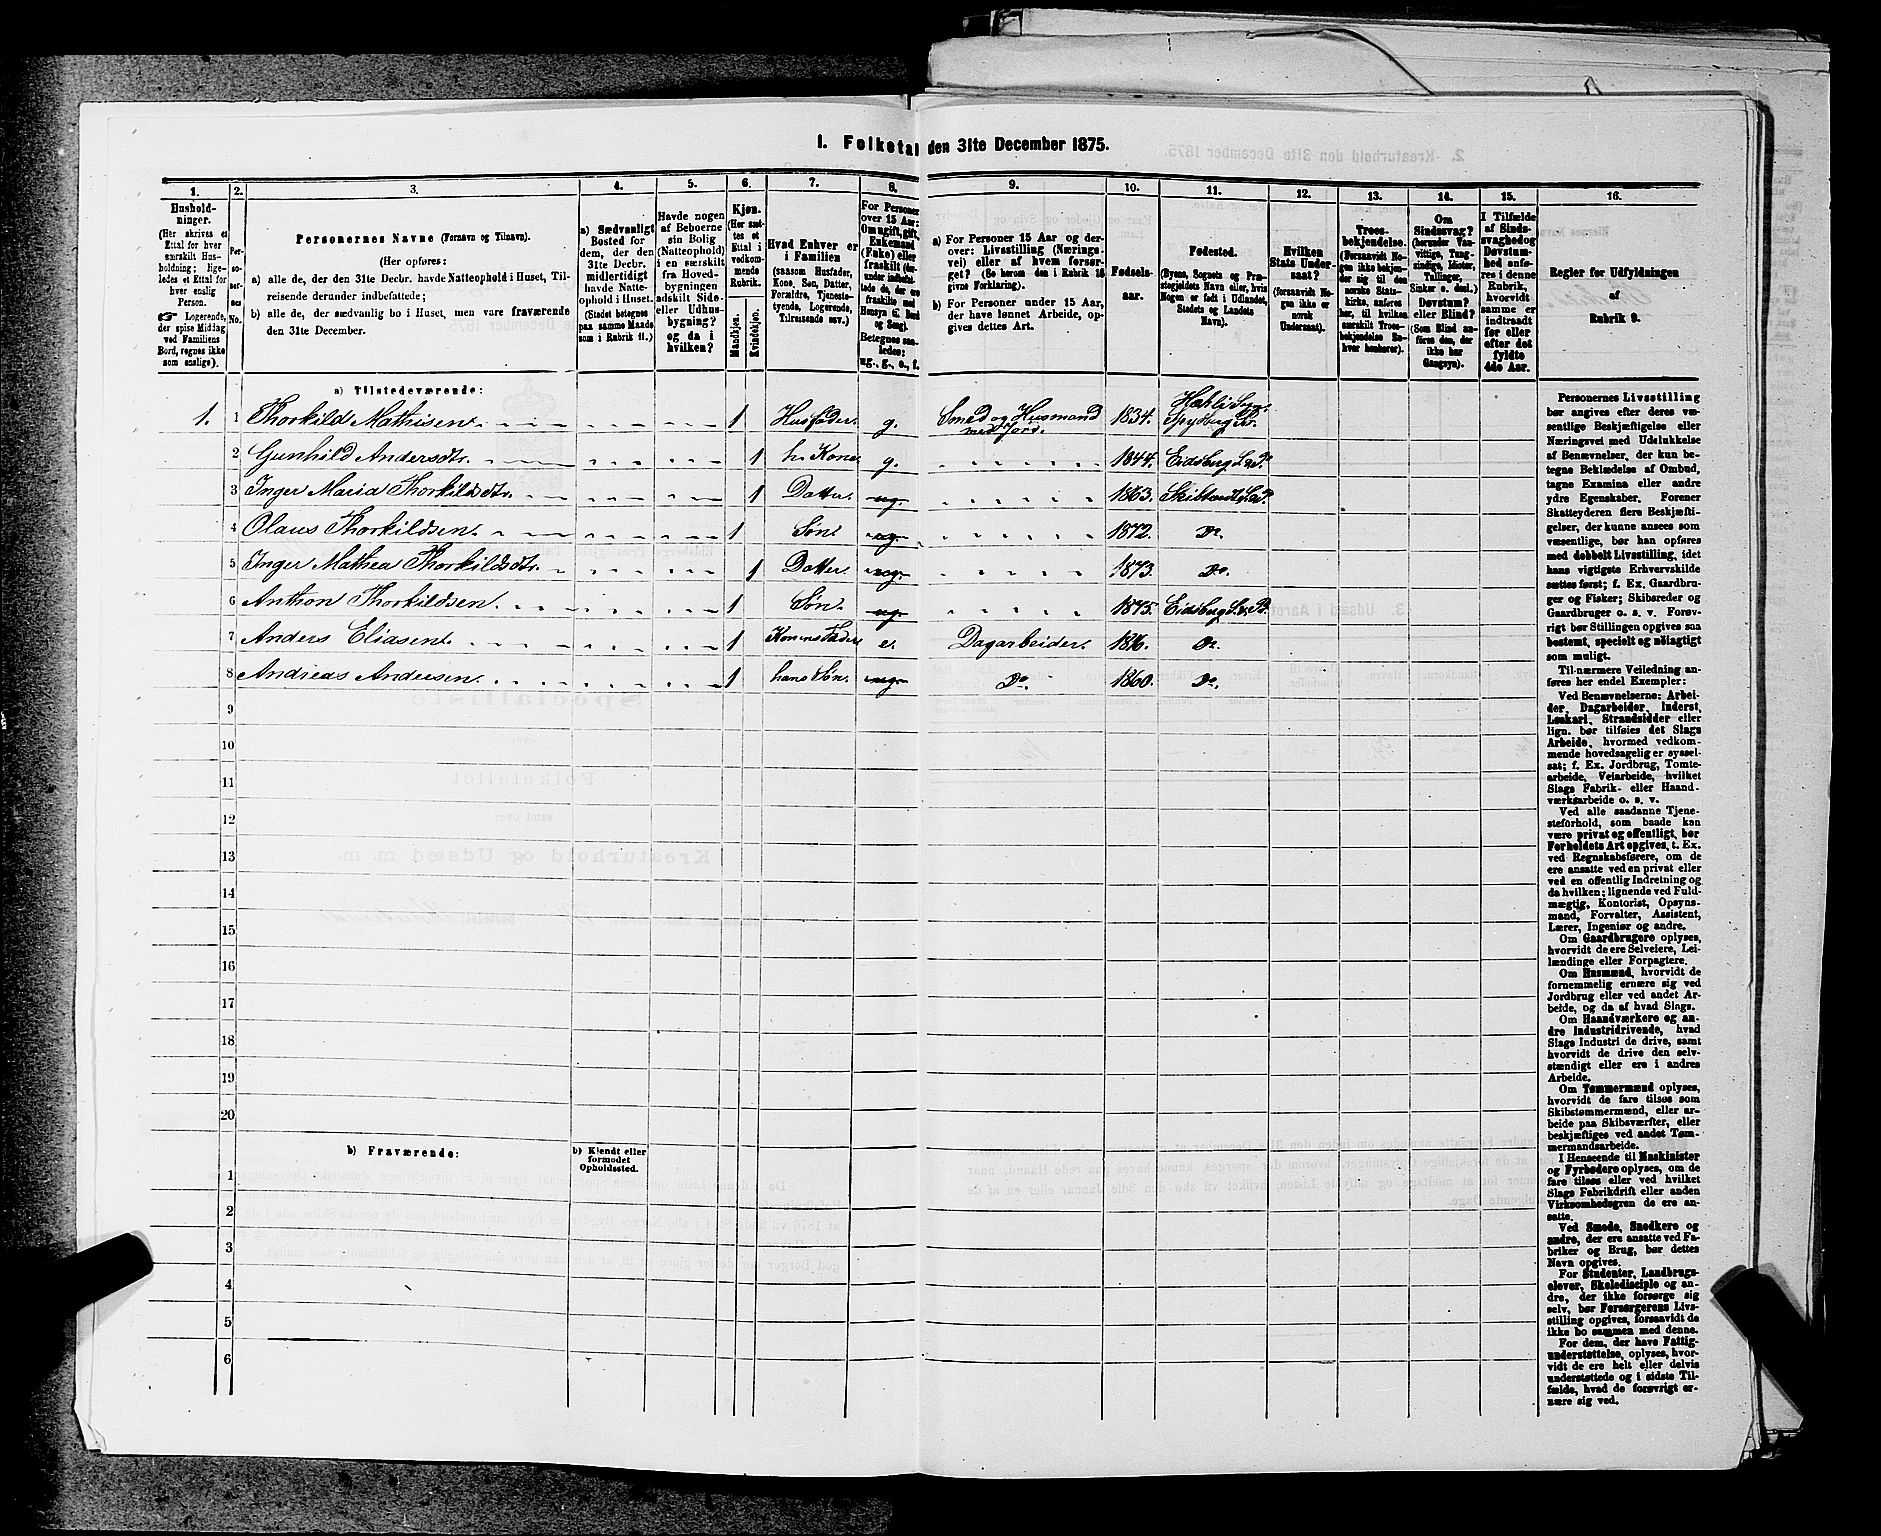 1. Folketal den 31te December 1875.
1.
2.
3.
4.
5.
6.
7.
8.
9.
10.
11.
12.
13.
14.
15.
16.
Hushold-
ninger.
(Her skrives et
Ettal for hver
særskilt Hus-
holdning; lige-
ledes et Ettal for
hver enslig
Person.
☞ Logerende,
der spise Middag
ved Familiens
Bord, regnes ikke
som enslige).
Per-
so-
ner-
nes
No.
Personernes Navne (Fornavn og Tilnavn).
(Her opføres:
a) alle de, der den 31te Decbr. havde Natteophold i Huset, Til-
reisende derunder indbefattede;
b) alle de, der sædvanlig bo i Huset, men vare fraværende
den 31te December.
a) Sædvanligt
Bosted for
dem, der den
31te Decbr.
midlertidigt
havde Natte-
ophold i Huset.
(Stedet betegnes
paa samme Maade
som i Rubrik 11.)
Havde nogen
af Beboerne
sin Bolig
(Natteophold)
i en særskilt
fra Hoved-
bygningen
adskilt Side-
eller Udhus-
bygning?
og da i
hvilken?
Kjøn.
(Her sæt-
tes et
Ettal i
vedkom-
mende
Rubrik.
Mandkjøn.
Kvindekjøn.
Hvad Enhver er
i Familien
(saasom Husfader,
Kone, Søn, Datter,
Forældre, Tjeneste-
tyende, Logerende,
Tilreisende osv.)
For Personer
over 15 Aar:
Om ugift, gift,
Enkemand
(Enke) eller
fraskilt
Betegnes saa-
ledes:
ug., g., e., f.
a) For Personer 15 Aar og der-
over: Livsstilling (Næringsvei)
eller af hvem forsør-
get? (Se herom den i Rubrik 16
givne Forklaring).
b) For Personer under 15 Aar,
der have lønnet Arbeide, op-
gives dettes Art.
Fødsels-
aar.
Fødested.
(Byens, Sognets og Præ-
stegjeldets Navn eller, hvis
Nogen er født i Udlandet,
Stedets og Landets
Navn).
Hvilken
Stats Under-
saat?
(forsaavidt No-
gen ikke er
norsk
Undersaat).
Troes-
bekjendelse.
(Forsaavidt No-
gen ikke bekjen-
der sig til den
norske Stats-
kirke, anføres
her, til hvilken
særskilt Troes-
bekjendelse En-
hver henhører).
Om
Sindssvag?
(herunder Van-
vittige, Tung-
sindige, Idioter,
Tullinger,
Sinker o. desl.)
Døvstum?
eller Blind?
(Som Blind an-
føres den, der
ikke har
Gangsyn).
I Tilfælde
af Sinds-
svaghed og
Døvstum-
hed anfø-
res i denne
Rubrik,
hvorvidt
samme er
indtraadt
før eller
efter det
fyldte
4de Aar.
Regler for Udfyldningen
af
Rubrik 9.
a) Tilstedeværende:
1. 1 Thorkild Mathisen 1 Husfader g. Smed og Husmand med Jord. 1834. Spydberg Pr.
2 Gunhild Andersdtr. 1 h. Kone g. 1844. Eidsberg S. o P.
3 Inger Maria Thorkildsdtr. 1 Datter ug. 1863.
4 Olaus Thorkildsen 1 Søn ug. 1872. Do.
5 Inger Mathea Thorkildsdtr. 1 Datter ug. 1873. Do.
6 Anthon Thorkildsen 1 Søn ug. 1875. Eidsberg S. o P.
7 Anders Eliasen 1 Konens Fader e. Dagarbeider. 1816. Do.
8 Andreas Andersen 1 hans Søn ug. Do. 1860. Do.
9
10
11
12
13
14
15
16
17
18
19
20
b) Fraværende:
b) Kjendt eller
formodet
Opholdssted.
1
2
3
4
5
6
Personernes Livsstilling
bør angives efter deres væ-
sentlige Beskjæftigelse eller
Næringsvei med Udelukkelse
af Benævnelser, der kun be-
tegne Beklædelse af Ombud,
tagne Examina eller andre
ydre Egenskaber. Forener
Skatteyderen flere Beskjæfti-
gelser, der kunne ansees som
væsentlige, bør han opføres
med dobbelt Livsstilling, idet
hans vigtigste Erhvervskilde
sættes først; f. Ex. Gaardbru-
ger og Fisker; Skibsreder og
Gaardbruger o. s. v. Forøv-
rigt bør Stillingen opgives saa
bestemt, specielt og nöiagtigt
som muligt.
Til nærmere Veiledning an-
føres her endel Exempler:
Ved Benævnelserne: Arbei-
der, Dagarbeider, Inderst,
Løskarl, Strandsidder eller
lign. bør tilføies det Slags
Arbeide, hvormed vedkom-
mende hovedsagelig er syssel-
sat; f. Ex. Jordbrug, Tomte-
arbeide, Veiarbeide, hvilket
Slags Fabrik- eller Haand-
værksarbeide o. s. v.
Ved alle saadanne Tjene-
steforhold, som baade kan
være privat og offentligt, bør
Forholdets Art opgives, t. Ex.
ved Regnskabsførere, om de
ere ansatte ved en privat eller
ved en offentlig Indretning og
da hvilken; lignende ved Fuld-
mægtig, Kontorist, Opsyns-
mand, Forvalter, Assistent,
Lærer, Ingeniør og andre.
Om Gaardbrugere oplyses,
hvorvidt de ere Selveiere, Lei-
lændinge eller Forpagtere.
Om Husmænd, hvorvidt de
fornemmelig ernære sig ved
Jordbrug eller ved andet Ar-
beide, og da af hvad Slags.
Om Haandværkere og an-
dre Industridrivende, hvad
Slags Industri de drive, samt
hvorvidt de drive den selv-
stændigt eller ere i andres
Arbeide.
Om Tømmermænd oplyses,
hvorvidt de fare tilsøs som
Skibstømmermænd, eller ar-
beide paa Skibsværfter, eller
beskjæftiges ved andet Tøm-
mermandsarbeide.
I Henseende til Maskinister
og Fyrbødere oplyses, om de
fare tilsøs eller ved hvilket
Slags Fabrikdrift eller anden
Virksomhedsgren de ere an-
satte.
Ved Smede, Snedkere og
andre, der ere ansatte ved Fa-
briker og Brug, bør dettes
Navn opgives.
For Studenter, Landbrugs-
elever, Skoledisciple og an-
dre, der ikke forsørge sig
selv, bør Forsørgerens Livs-
stilling opgives, forsaavidt de
ikke bo sammen med denne.
For dem, der have Fattig-
understøttelse, oplyses, hvor-
vidt de ere helt eller delvis
understøttede og i sidste Til-
fælde, hvad de forøvrigt er-
nære sig ved.